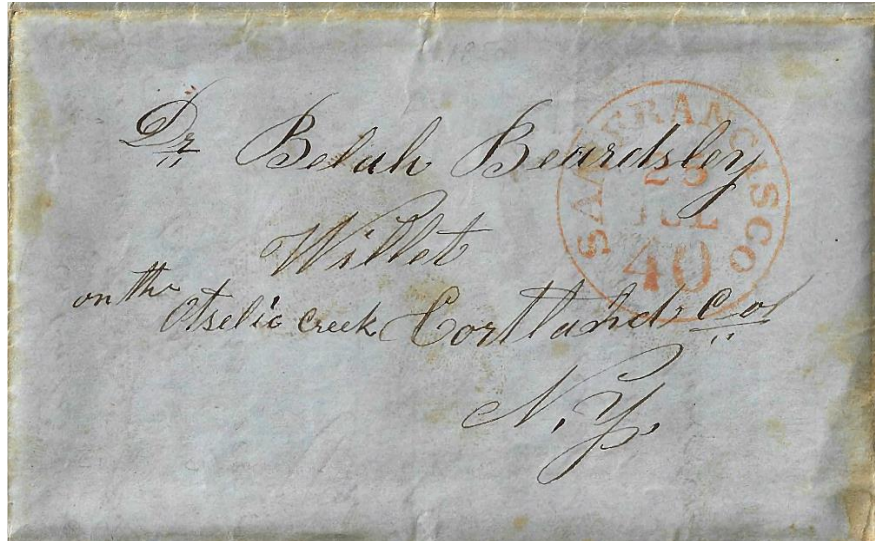 Dr Beluh Beardsley
Willet
on the Otselic Creek Cortland Co
N.Y.
SAN FRANCISCO
25
JUL
40